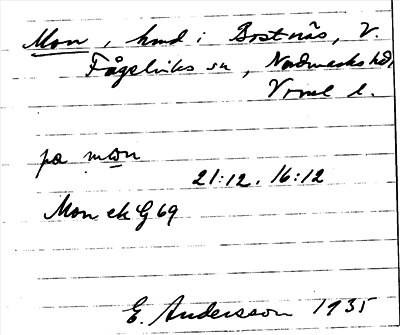 Mon, hmd i Bostnäs, V.
Fågelviks sn, Nordmarks hd,
Vrml l.
på mon
21:12. 16:12
Mon ek G 69
E. Andersson 1935